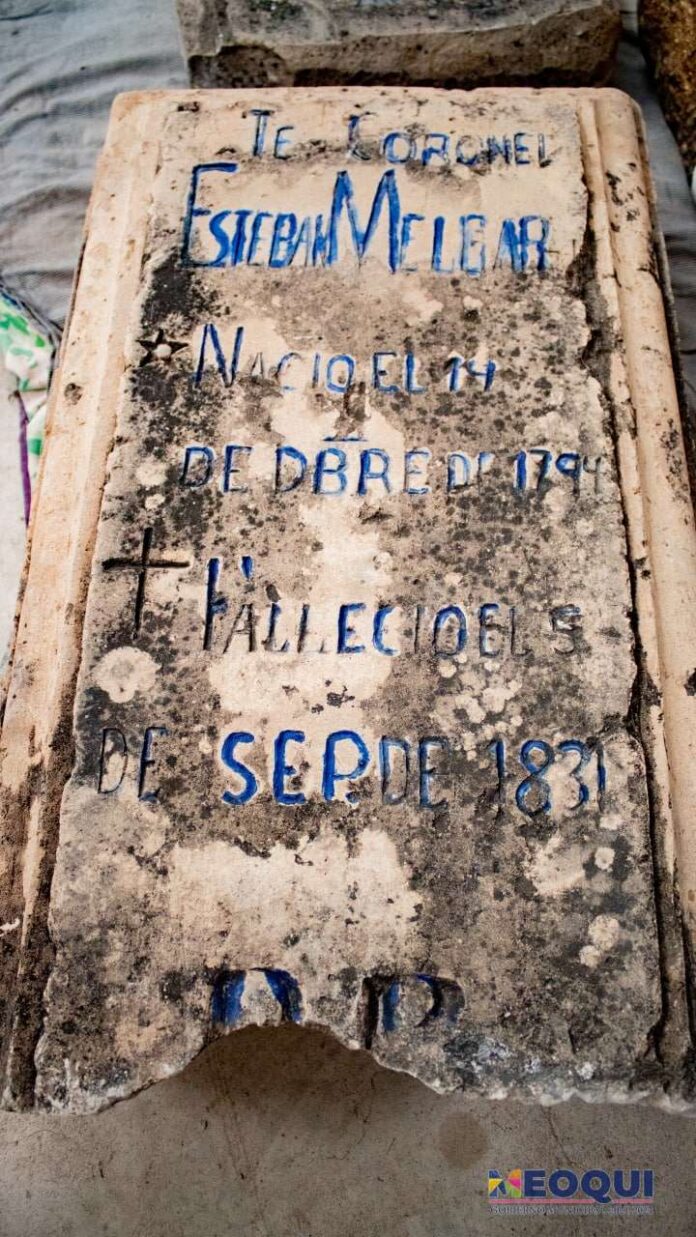 Te CORONEL
ESTEBAN MELGAR
NACIO EL 14
DE DBRE DE 1794
FALLECIO EL 5
DE SEP. DE 1831
MEOQUI